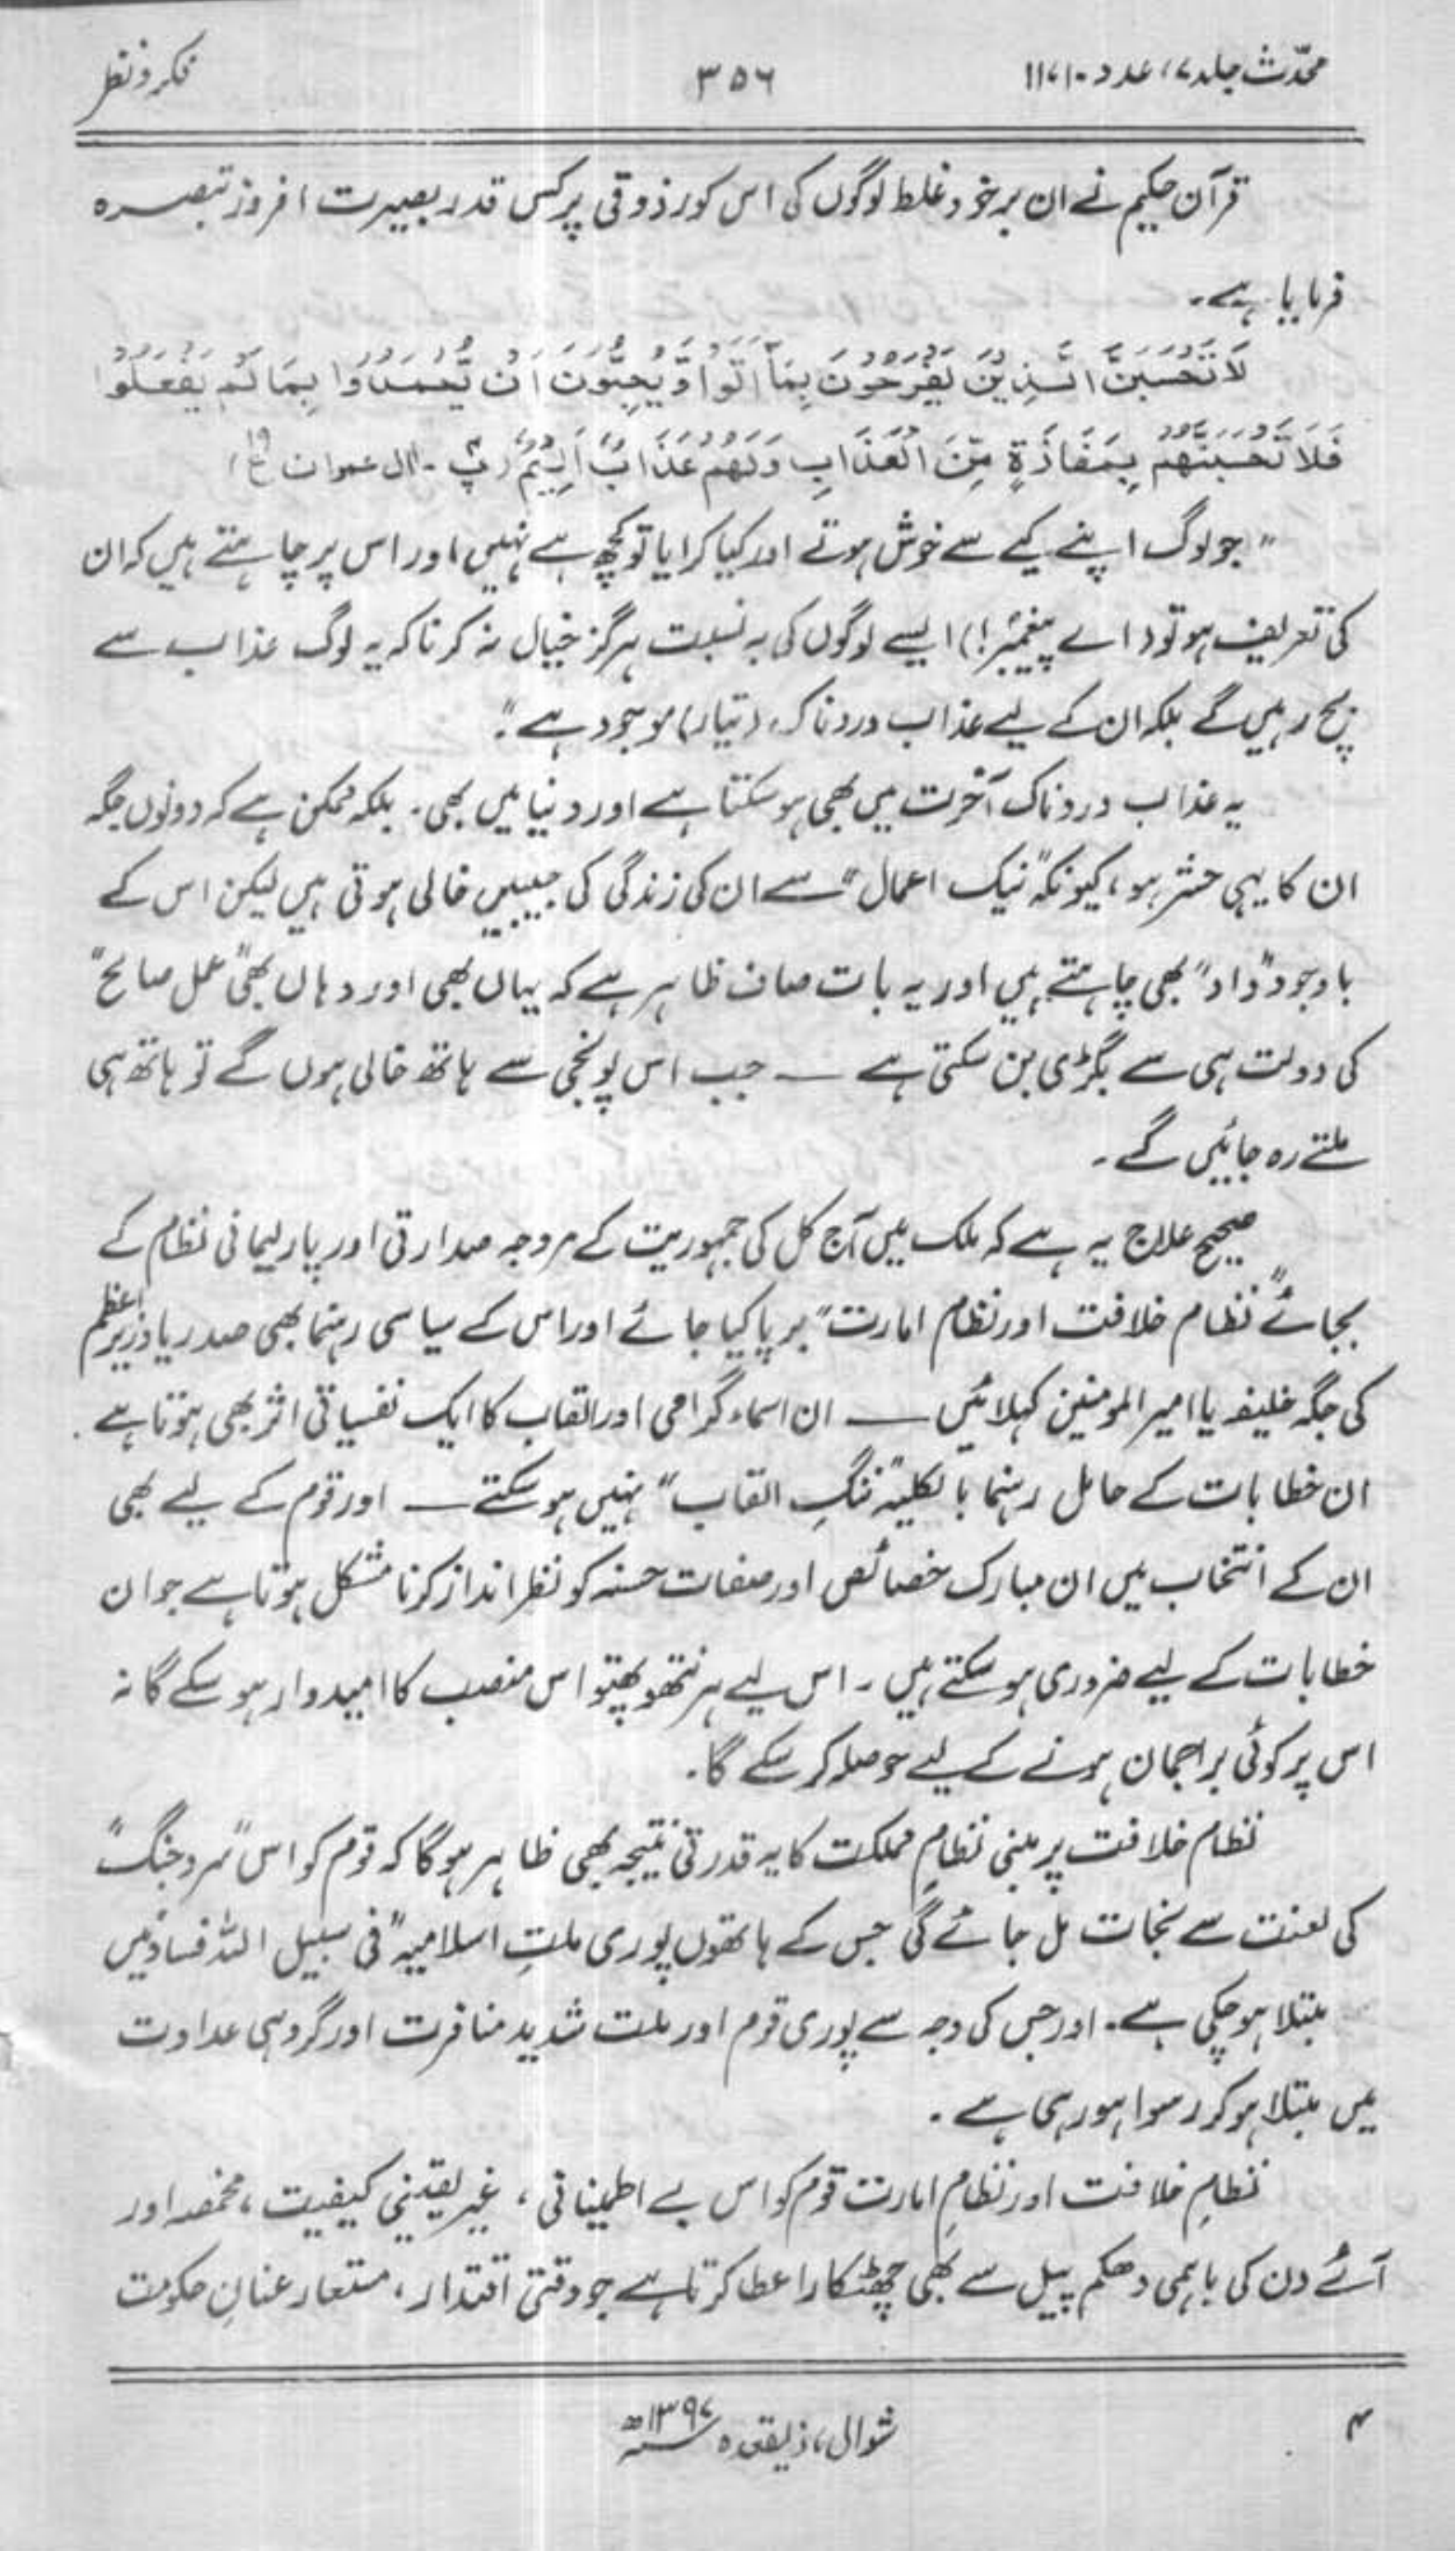 محدّث جلد ۷، عدد ۱۰، ۱۱ ۳۵۶ فکر و نظر
قرآن حکیم نے ان برخود غلط لوگوں کی اس کور ذوقی پر کس قدر بصیرت افروز تبصرہ
فرمایا ہے۔
لَا تَحْسَبَنَّ الَّذِیْنَ یَفْرَحُوْنَ بِمَآ اَتَوْا وَّیُحِبُّوْنَ اَنْ یُّحْمَدُوْا بِمَا لَمْ یَفْعَلُوْا
فَلَا تَحْسَبَنَّهُمْ بِمَفَازَةٍ مِّنَ الْعَذَابِ وَلَهُمْ عَذَابٌ اَلِیْمٌ (پ۴ - اٰل عمران ع۱۹)
”جو لوگ اپنے کیے سے خوش ہوتے اور کیا کرایا تو کچھ ہے نہیں اور اس پر چاہتے ہیں کہ ان
کی تعریف ہو تو (اے پیغمبرؐ!) ایسے لوگوں کی بہ نسبت ہرگز خیال نہ کرنا کہ یہ لوگ عذاب سے
بچ رہیں گے بلکہ ان کے لیے عذاب دردناک (تیار) موجود ہے“۔
یہ عذاب دردناک آخرت میں بھی ہو سکتا ہے اور دنیا میں بھی۔ بلکہ ممکن ہے کہ دونوں جگہ
ان کا یہی حشر ہو، کیونکہ ”نیک اعمال“ سے ان کی زندگی کی جیبیں خالی ہوتی ہیں لیکن اس کے
باوجود ”داد“ بھی چاہتے ہیں اور یہ بات صاف ظاہر ہے کہ یہاں بھی اور وہاں بھی ”عمل صالح“
کی دولت ہی سے بگڑی بن سکتی ہے ــــ جب اس پونجی سے ہاتھ خالی ہوں گے تو ہاتھ ہی
ملتے رہ جائیں گے۔
صحیح علاج یہ ہے کہ ملک میں آج کل کی جمہوریت کے مروجہ صدارتی اور پارلیمانی نظام کے
بجائے ”نظام خلافت اور نظام امارت“ برپا کیا جائے اور اس کے سیاسی رہنما بھی صدر یا وزیر اعظم
کی جگہ خلیفہ یا امیر المومنین کہلائیں ــــ ان اسماء گرامی اور القاب کا ایک نفسیاتی اثر بھی ہوتا ہے۔
ان خطابات کے حامل رہنما بالکلیہ ”ننگِ القاب“ نہیں ہو سکتے ــــ اور قوم کے لیے بھی
ان کے انتخاب میں ان مبارک خصائص اور صفات حسنہ کو نظر انداز کرنا مشکل ہوتا ہے جو ان
خطابات کے لیے ضروری ہو سکتے ہیں۔ اس لیے ہر نتھو پھتو اس منصب کا امیدوار ہو سکے گا نہ
اس پر کوئی براجمان ہونے کے لیے حوصلہ کر سکے گا۔
نظام خلافت پر مبنی نظامِ مملکت کا یہ قدرتی نتیجہ بھی ظاہر ہوگا کہ قوم کو اس ”سرد جنگ“
کی لعنت سے نجات مل جائے گی جس کے ہاتھوں پوری ملتِ اسلامیہ ”فی سبیل اللہ فساد“ میں
مبتلا ہو چکی ہے۔ اور جس کی وجہ سے پوری قوم اور ملت شدید منافرت اور گروہی عداوت
میں مبتلا ہو کر رسوا ہو رہی ہے۔
نظامِ خلافت اور نظامِ امارت قوم کو اس بے اطمینانی، غیر یقینی کیفیت، مخمصہ اور
آئے دن کی باہمی دھکم پیل سے بھی چھٹکارا عطا کرتا ہے جو وقتی اقتدار، مستعار عنانِ حکومت
۴ شوال، ذیقعدہ ۱۳۹۷ھ